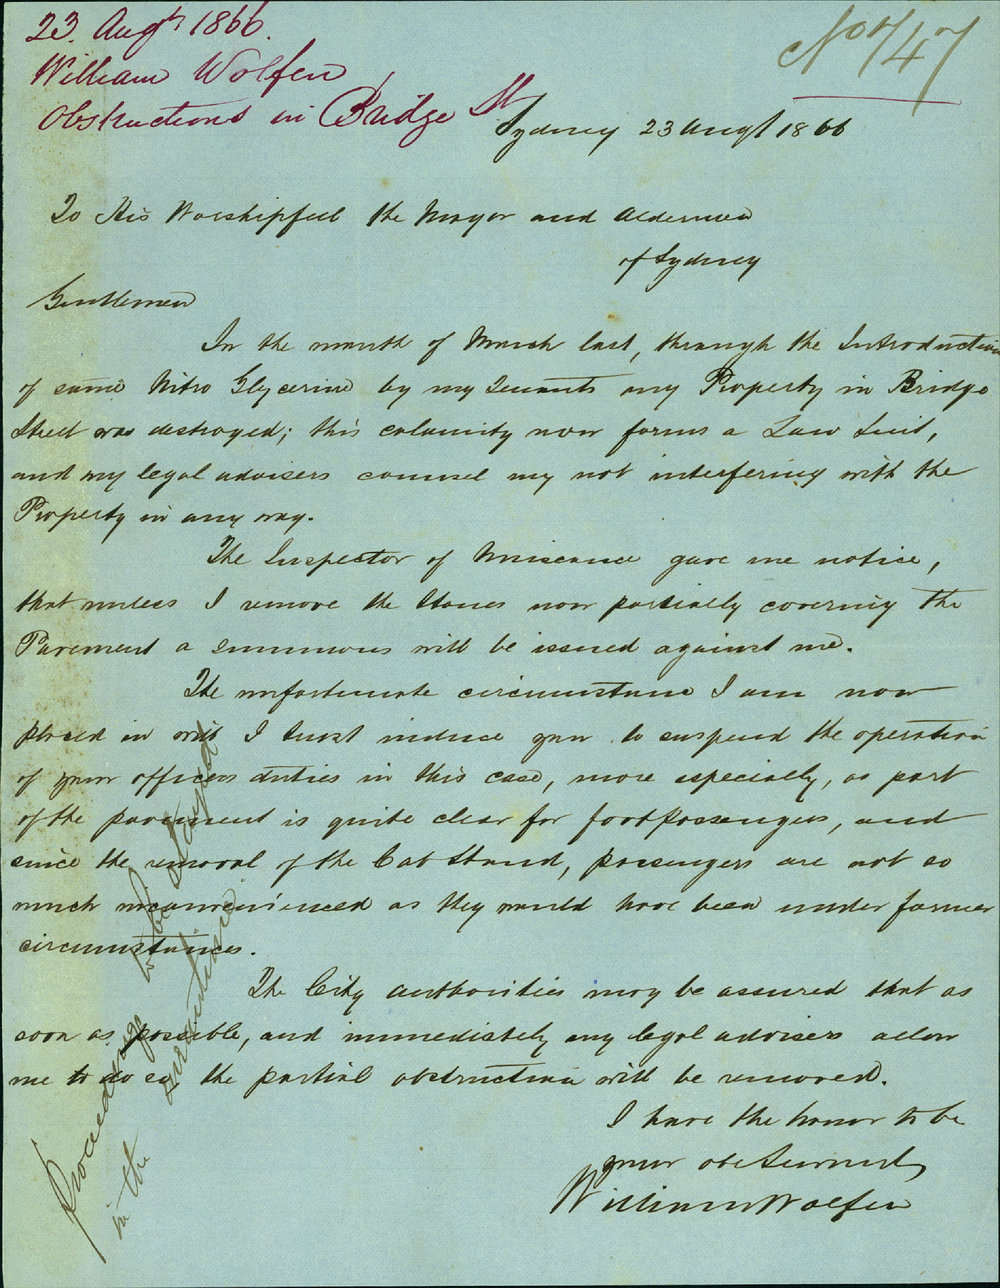 23. Augt 1866.
William Wolfen
Obstructions in Bridge St
No 747
Sydney 23 Augt 1866
To His Worshipful the Mayor and Aldermen
of Sydney
Gentlemen
In the month of March last, through the Introduction
of some Nitro Glycerine by my Tenants my Property in Bridge
Street was destroyed; this calamity now forms a Law Suit,
and my legal advisers counsel my not interfering with the
Property in any way.
The Inspector of Nuisance gave me notice,
that unless I remove the Stones now partially covering the
Pavement a summons will be issued against me.
The unfortunate circumstance I am now
placed in will I trust induce you to suspend the operation
of your officers duties in this case, more especially, as part
of the pavement is quite clear for footpassengers, and
since the removal of the Cab Stand, passengers are not so
much inconvenienced as they would have been under former
circumstances.
The City authorities may be assured that as
soon as possible, and immediately my legal advisers allow
me to do so, the partial obstruction will be removed.
I have the honor to be
your obt Servant
William Wolfen
Proceedings to be stayed
in the meantime